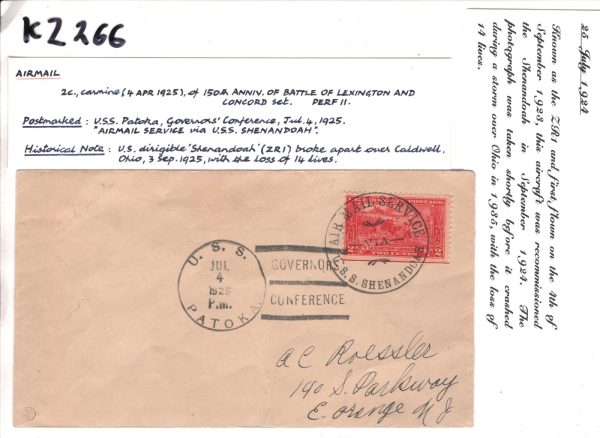 KZ266
AIRMAIL
2c., carmine (4 APR 1925), of 150th ANNIV. OF BATTLE OF LEXINGTON AND
CONCORD set. PERF 11.
Postmarked : U.S.S. Patoka, Governors' Conference, Jul. 4, 1925.
"AIRMAIL SERVICE via U.S.S. SHENANDOAH".
Historical Note : U.S. dirigible 'Shenandoah' (ZR1) broke apart over Caldwell.
Ohio, 3 Sep. 1925, with the loss of 14 lives.
U. S. S.
JUL
4
1925
P.M.
PATOKA
GOVERNORS
CONFERENCE
AIR MAIL SERVICE
VIA
U.S.S. SHENANDOAH
POSTAGE
2 TWO CENTS 2
A C Roessler
140 S. Parkway
E. Orange N J
25 July 1924
Known as the ZR1 and first flown on the 4th of
September 1923, this aircraft was recommissioned
the Shenandoah in September 1924. The
photograph was taken shortly before it crashed
during a storm over Ohio in 1935, with the loss of
14 lives.